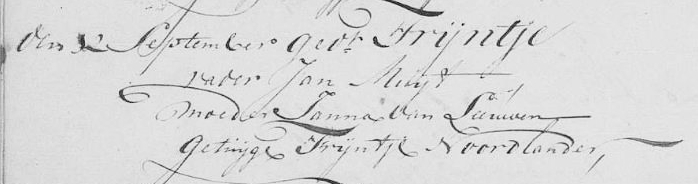 den September gedt Trijntje
vader Jan Muijt
moeder Janna van Leeuwen
getuijge Trijntje Noordlander